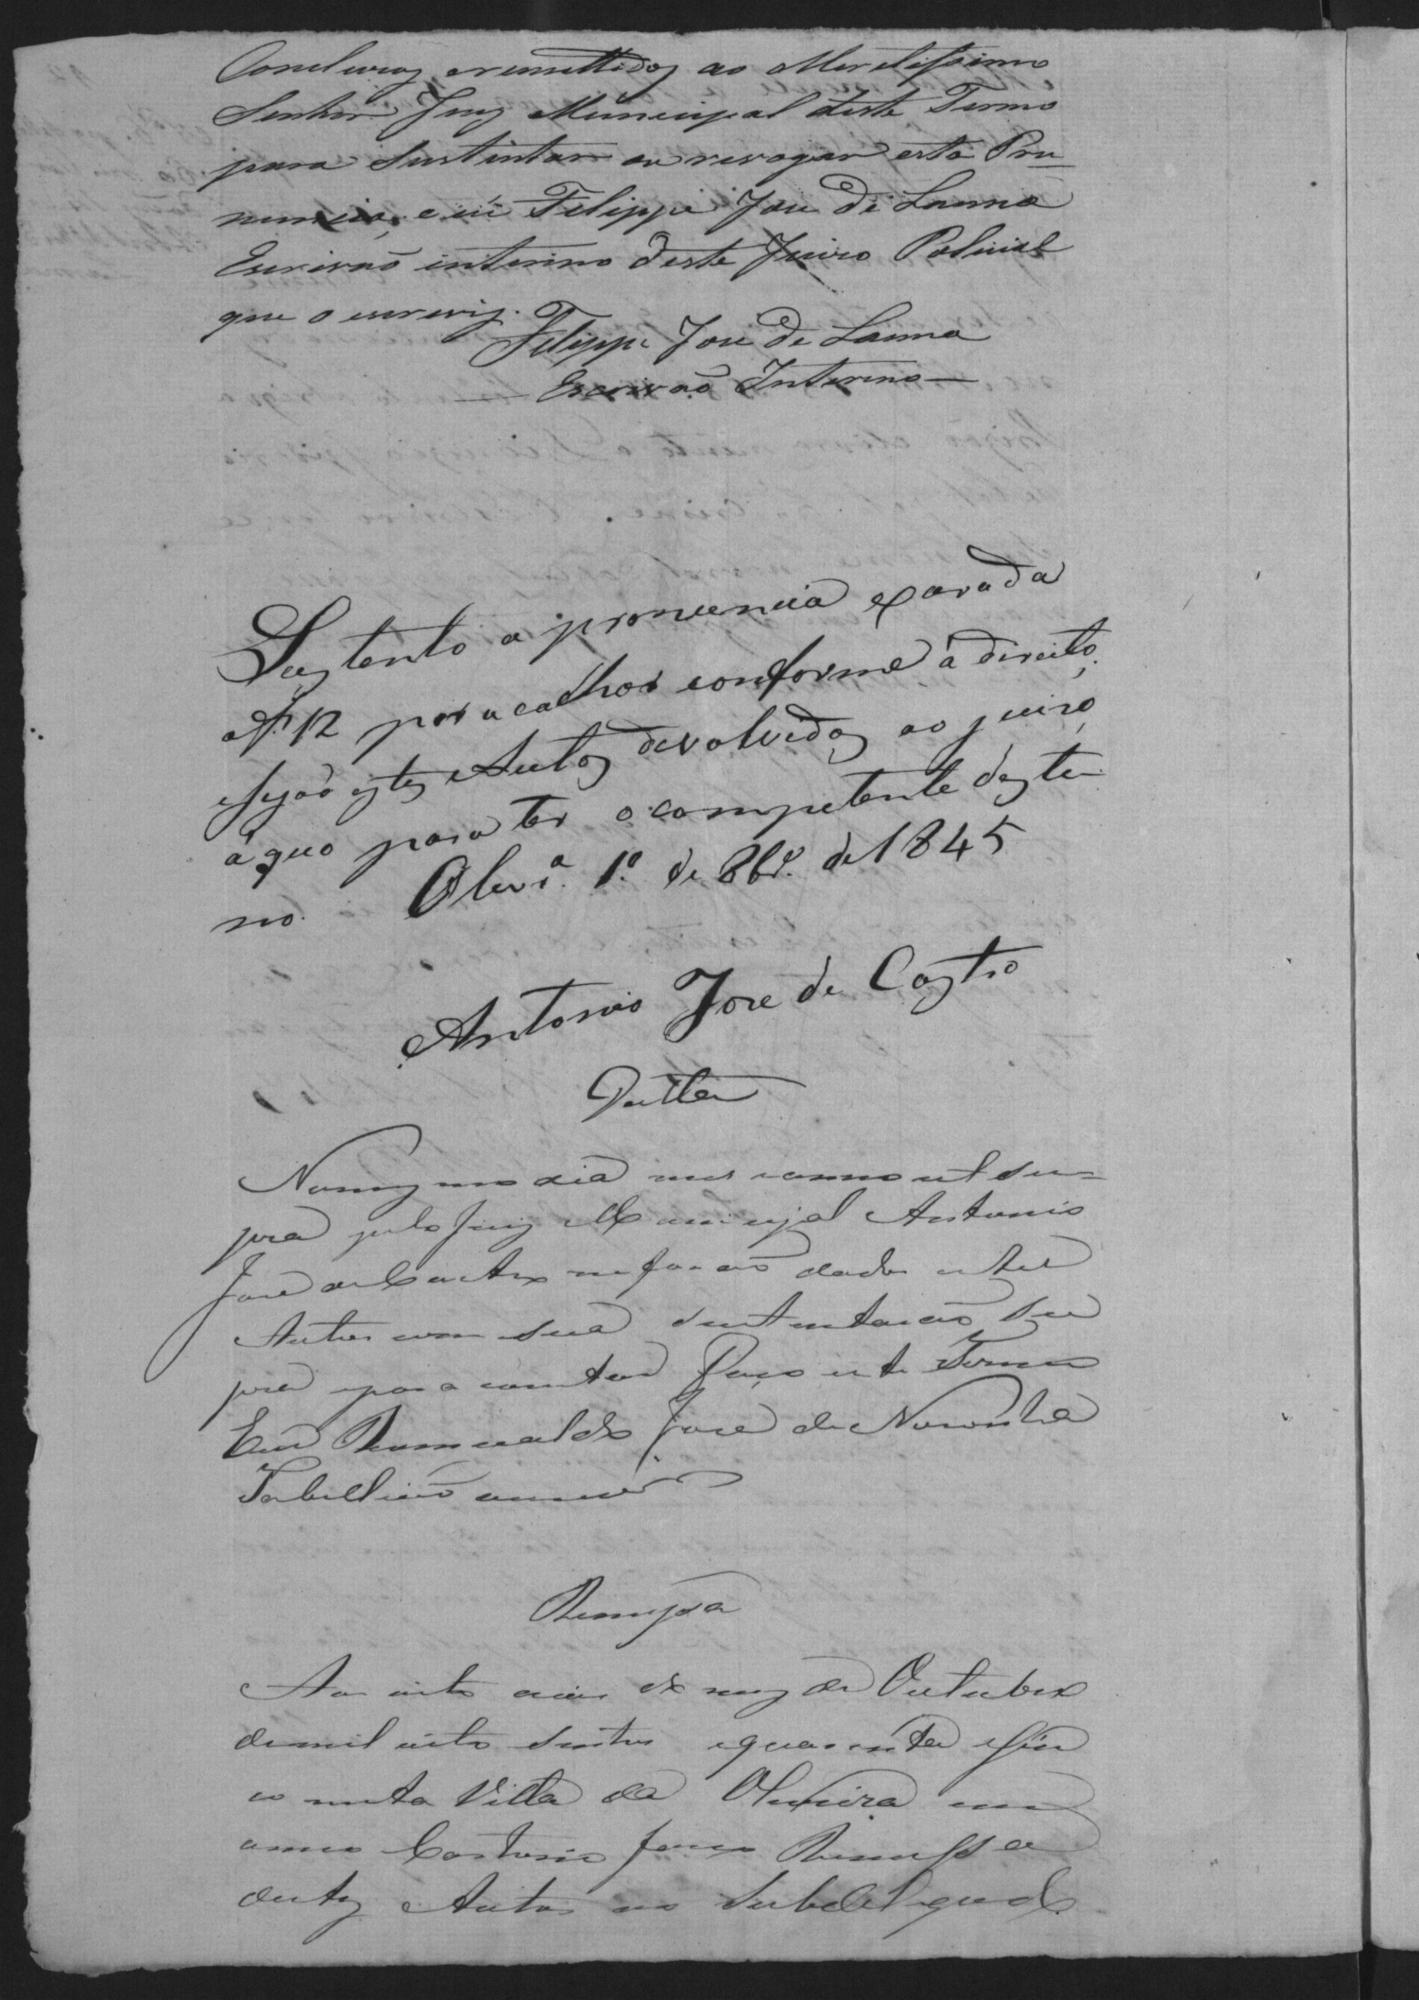 Concluzos, e remettidos ao Meretissimo
Senhor Juiz Municipal deste Termo
para Sustentar ou revogar esta Pro-
nuncia, e eú Filippe Jose de Lanna
Escrivaõ interino deste Juizo Policial
que o escreviz.
Filippe Jose de Lanna
Escrivaõ Interino
Sustento a pronuncia exarada
af. 12 por a calhor conforme á direito,
e sejaõ estes Autos devolvidos ao juizo
á quo para ter o competente desti-
no. Oliv.ª 1.º de 8br.º de 1845
Antonio Jose de Castro
Datta
No mesmo dia mes e anno ut su-
pra pelo Juiz Municipal Antonio
Jose de Castro me foraõ dados estes
Autos com sua sustentacaõ Su
pra e para constar Faço este Termo
Eu Romualdo Jose de Noronha
Tabelliaõ escrevi
Remessa
Aos oito dias do mez de Outubro
de mil oito Sentos e quarenta e Sin
co nesta Villa da Oliveira em
o meu Cartorio faço Remessa
destes Autos ao Subdelegado